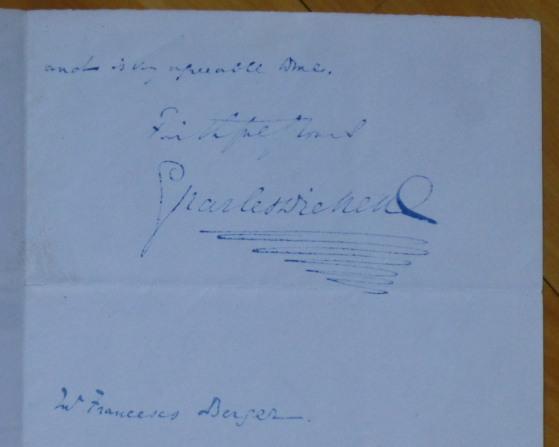 and is very agreeable time.
Faithfully Yours
Charles Dickens
Mr Francesco Berger.